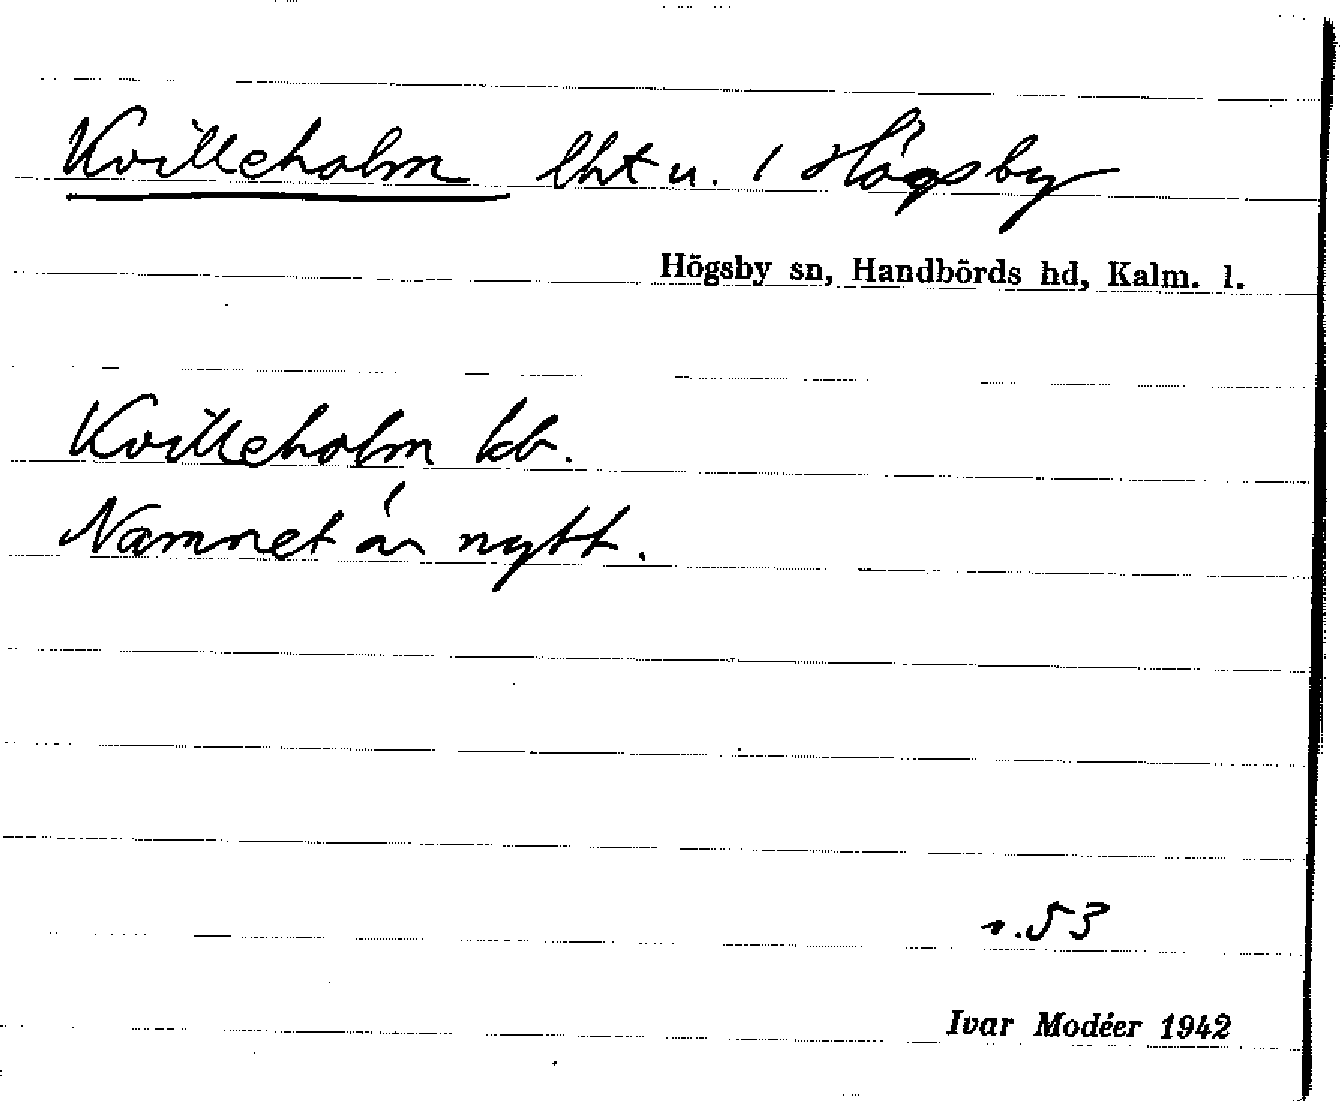 Kvilleholm lht u. 1 Högsby
Högsby sn, Handbörds hd, Kalm. l.
Kvilleholm kb.
Namnet är nytt.
s.53
Ivar Modéer 1942